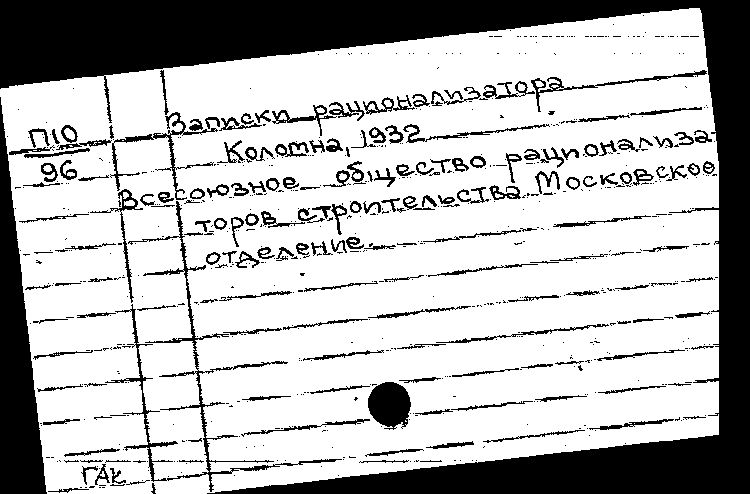 П10
96
Записки рационализатора
Коломна, 1932
Всесоюзное общество рационализа-
торов строительства Московское
отделение.
ГАК